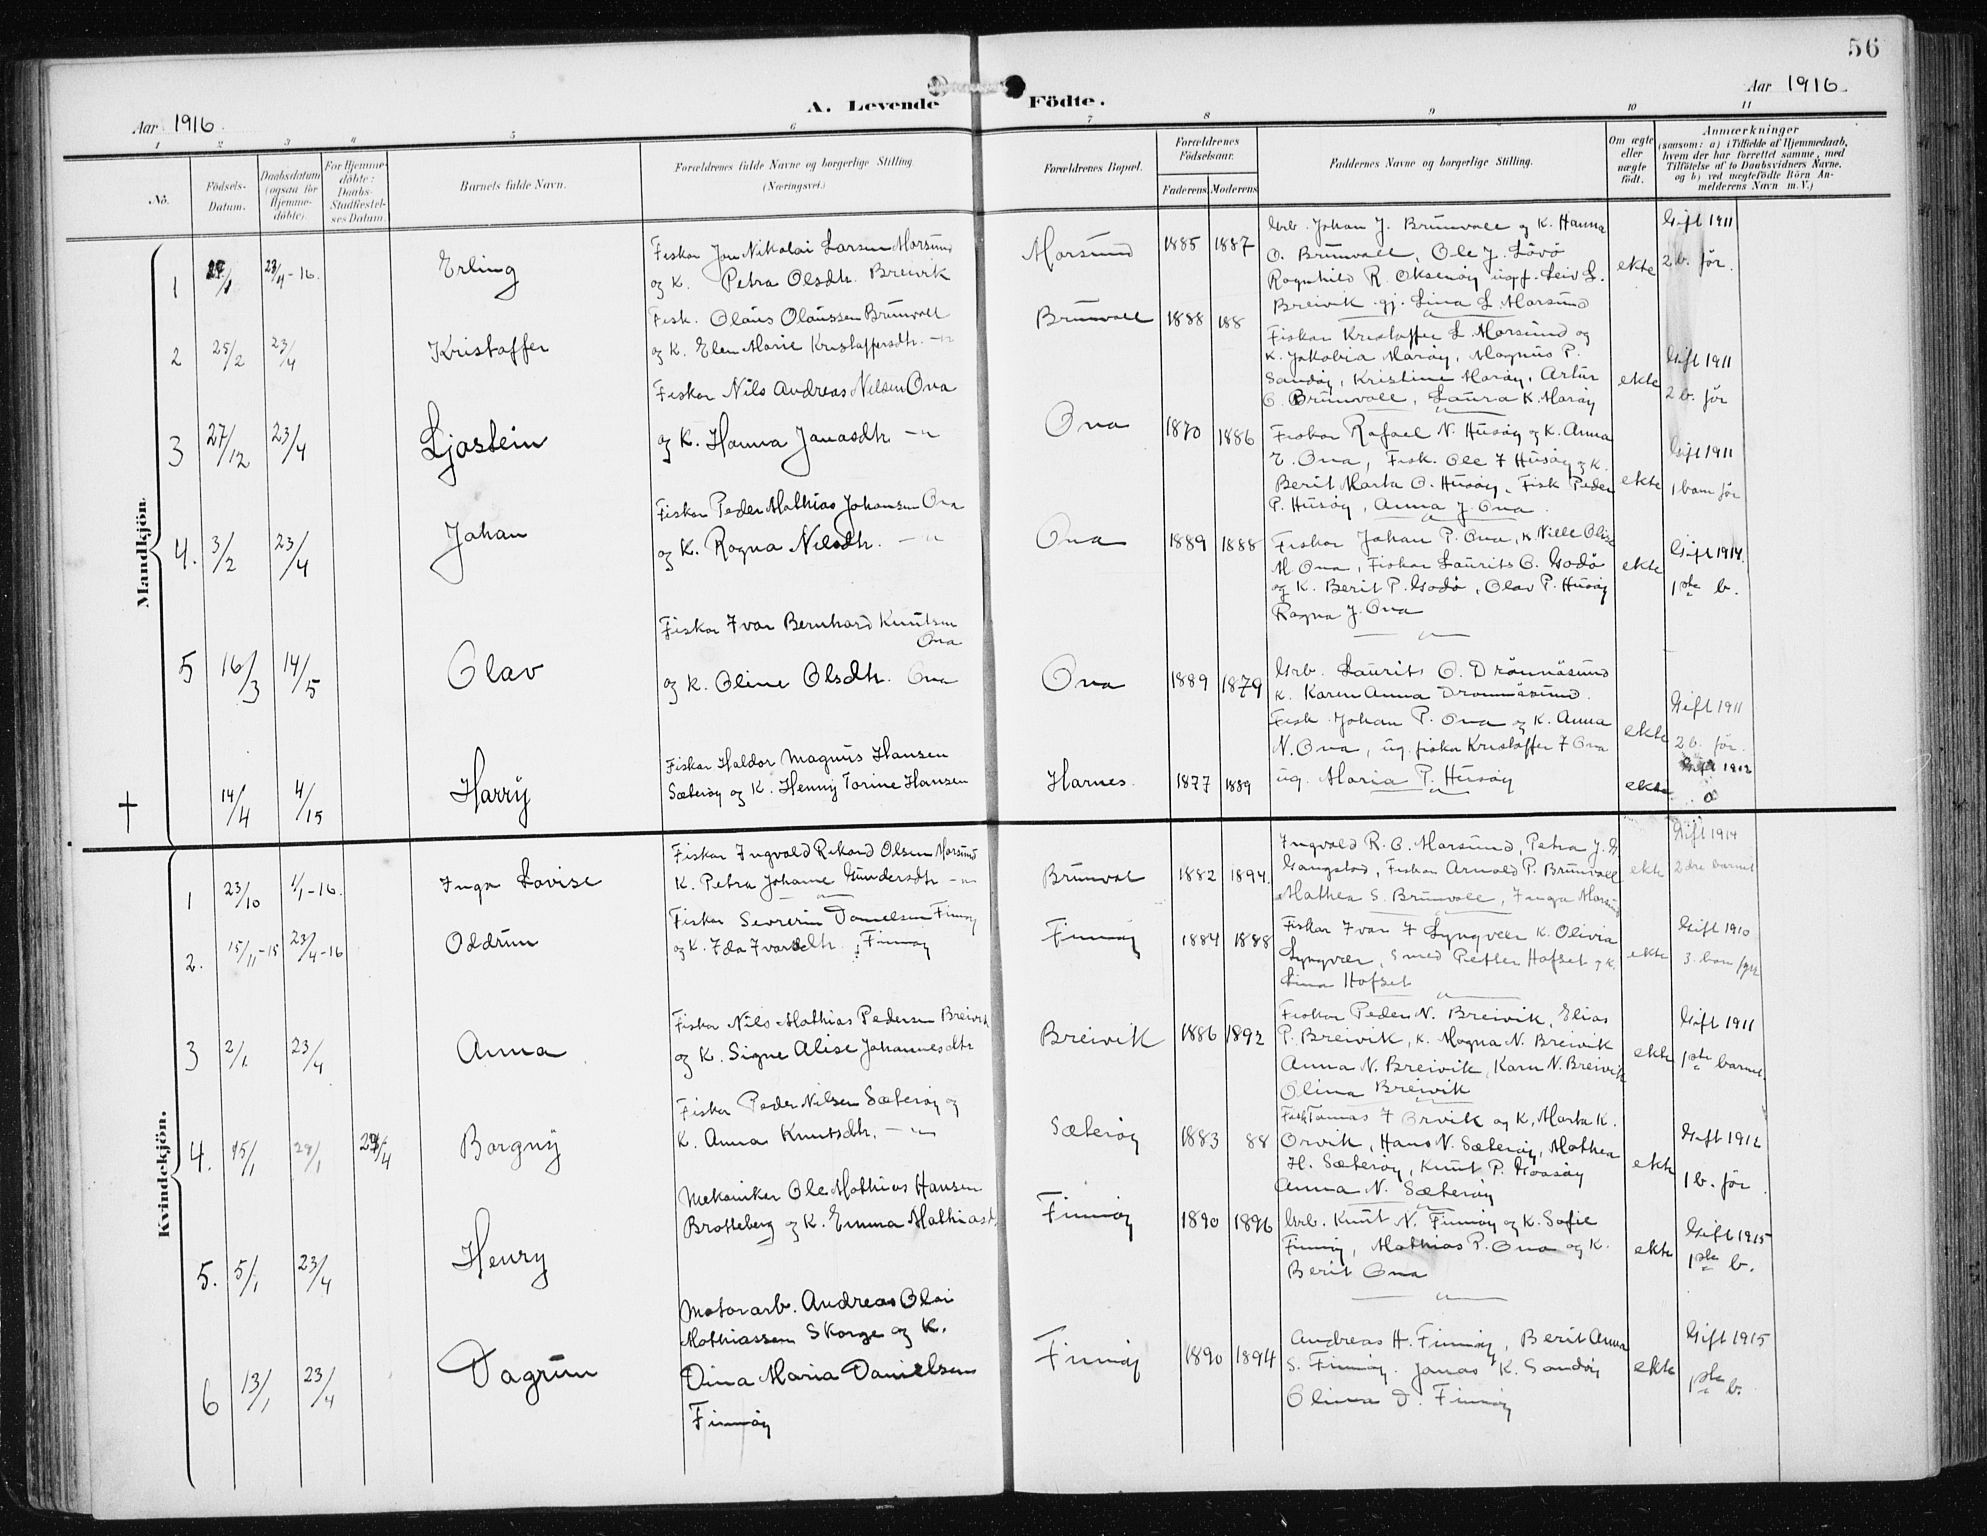 56
Aar 1916. A. Levende Födte. Aar 1916.
1 2 3 4 5 6 7 8 9 10 11
Nö.
Födsels-Datum.
Daabsdatum (ogsaa for Hjemme-döbte).
For Hjemme-döbte: Daabs-Stadfæstel-ses Datum.
Barnets fulde Navn.
Forældrenes fulde Navne og borgerlige Stilling. (Næringsvei.)
Forældrenes Bopæl.
Forældrenes Födselsaar.
Faderens Moderens
Faddernes Navne og borgerlige Stilling.
Om ægte eller uægte födt.
Anmærkninger
(saasom: a) i Tilfælde af Hjemmedaab, hvem der har forrettet samme, med Tilföielse af to Daabsvidners Navne. og b) ved uægtefödte Börn An-melderens Navn m. V.)
Mandkjön
1 23/4-16. Erling
Fisker Jon Nikolai Larsen Morsund
og K. Petra Olsdtr. Breivik
Morsund 1885 1887
Grb. Johan J. Brünvoll og K. Hanna
O. Brünvoll, Ole J. Lövö
Ragnhild R. Oksenöy ugf. Leiv L.
Breivik gj. Lina L. Morsund
ekte Gift 1911
2 b. för.
2 25/2 23/4 Kristoffer
Fisk. Olaus Olaüssen Brünvoll
og K. Elen Marie Kristoffersdtr. -"-
Brünvoll 1888 188
Fisker Kristoffer L. Morsünd og
K. Jakobia Haröy, Magnus P.
Sandöy, Kristine Haröy, Artur
O. Brünvoll, Laura K. Haröy
ekte Gift 1911
2 b. för
3 27/12 23/4 Ljostein
Fisker Nils Andreas Nilsen Ona
og K. Hanna Jonasdtr. -"-
Ona 1870 1886
Fisker Rafael N. Hüsöy og K. Anna
E. Ona, Fisk. Ole I Hüsöy og K.
Berit Marta O. Hüsöy, Fisk Peder
P. Hüsöy, Anna J. Ona.
ekte Gift 1911
1 barn för
4. 3/2 23/4 Johan
Fisker Peder Mathias Johansen Ona
og K. Ragna Nilsdtr. -"-
Ona 1889 1888
Fisker Johan P. Ona, K Nille Olise
M. Ona, Fisker Laurits O. Godö
og K. Berit P. Godö, Olav P. Hüsöy
Ragna J. Ona
ekte Gift 1914.
1ste b.
5 16/3 14/5 Olav
Fisker Ivar Bernhard Knutsen
Ona
og K. Oline Olsdtr. Ona
Ona 1889 1879
Grb. Laurits O. Drönnäsund
K. Karen Anna Dronnäsund.
Fisk Johan P. Ona og K. Anna
N. Ona, ug. fisker Kristoffer I Ona
ug. Maria P. Hüsöy
ekte Gift 1911
2 b. för.
† 14/4 4/15 Harry
Fisker Haldor Magnus Hansen
Sæteröy og K. Henny Torine Hansen
Harnes. 1877 1889
ekte Gift 1912
0
Kvindekjön.
1 23/10 1/1-16. Inga Lovise
Fisker Ingvald Rikard Olsen Morsund
K. Petra Johanne Gündersdtr -"-
Brünvol 1882 1894.
Ingvald R. O. Morsünd, Petra J. G.
Gangstad, Fisker Arnold P. Brünvoll
Mathea S. Brünvoll, Inga Morsund
ekte Gift 1914
2dre barnet
2. 15/11-15 23/4-16 Oddrün
Fisker Severin Danielsen Finnöy
og K. Ida Ivarsdtr. Finnöy
Finnöy 1884 1888
Fisker Ivar I Lyngvær K. Olivia
Lyngvær, Smed Petter Hofset og K.
Lina Hofset
ekte Gift 1910
3. barn för
3 2/1. 23/4 Anna
Fisker Nils Mathias Pedersen Breivik
og K. Signe Alise Johannesdtr
Breivik 1886 1892
Fisker Peder N. Breivik, Elias
P. Breivik, K. Magna N. Breivik
Anna N. Breivik, Karn N. Breivik
Olina Breivik
ekte Gift 1911
1ste barnet.
4. 15/1 29/1 24/4 Borgny
Fisker Peder Nilsen Sæteröy og
K. Anna Knutsdtr. -"-
Sæteröy 1883 88
Fisk Tomas I Orvik og K. Marta K.
Orvik, Hans N. Sæteröy, Mathea
H. Sæteröy, Knut P.
Anna N. Sæteröy
ekte Gift 1912
1 b. för
5. 5/1 23/4 Henry
Mekaniker Ole Mathias Hansen
Brotteberg og K. Emma Mathiasd
Finnöy 1890 1896
Grb. Knut N. Finnöy og K. Sofie
Finnöy, Mathias P. Ona og K.
Berit Ona
ekte Gift 1915
1ste b.
6 13/1 23/4 Dagrün
Motorarb. Andreas Olai
Mathiassen Skorge og K.
Dina Maria Danielsen
Finnöy
Finnöy 1890 1894
Andreas H. Finnöy, Berit Anna
S. Finnöy. Jonas K. Sandöy
Olina D. Finnöy
ekte Gift 1915
1ste b.